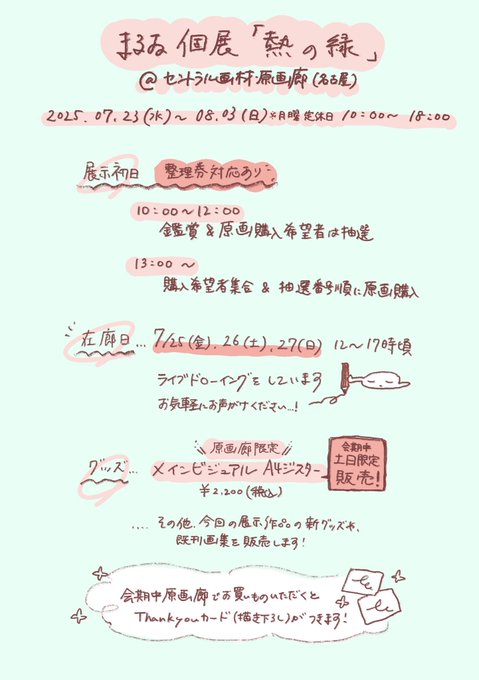 まるゐ 個展「熱の緑」
@セントラル画材 原画廊 (名古屋)
2025.07.23(水)〜08.03(日)※月曜定休日 10:00〜18:00
展示初日 整理券対応あり
10:00〜12:00
鑑賞 & 原画購入希望者は抽選
13:00 〜
購入希望者集合 & 抽選番号順に原画購入
在廊日… 7/25(金).26(土).27(日) 12〜17時頃
ライブドローイングをしています
お気軽にお声がけください…!
グッズ…
原画廊限定
メインビジュアル A4ジスター
¥2,200(税込)
会期中
土日限定
販売!
.... その他、今回の展示作品の新グッズや、
既刊画集を販売します!
会期中原画廊でお買いものいただくと
Thankyouカード(描き下ろし)がつきます!